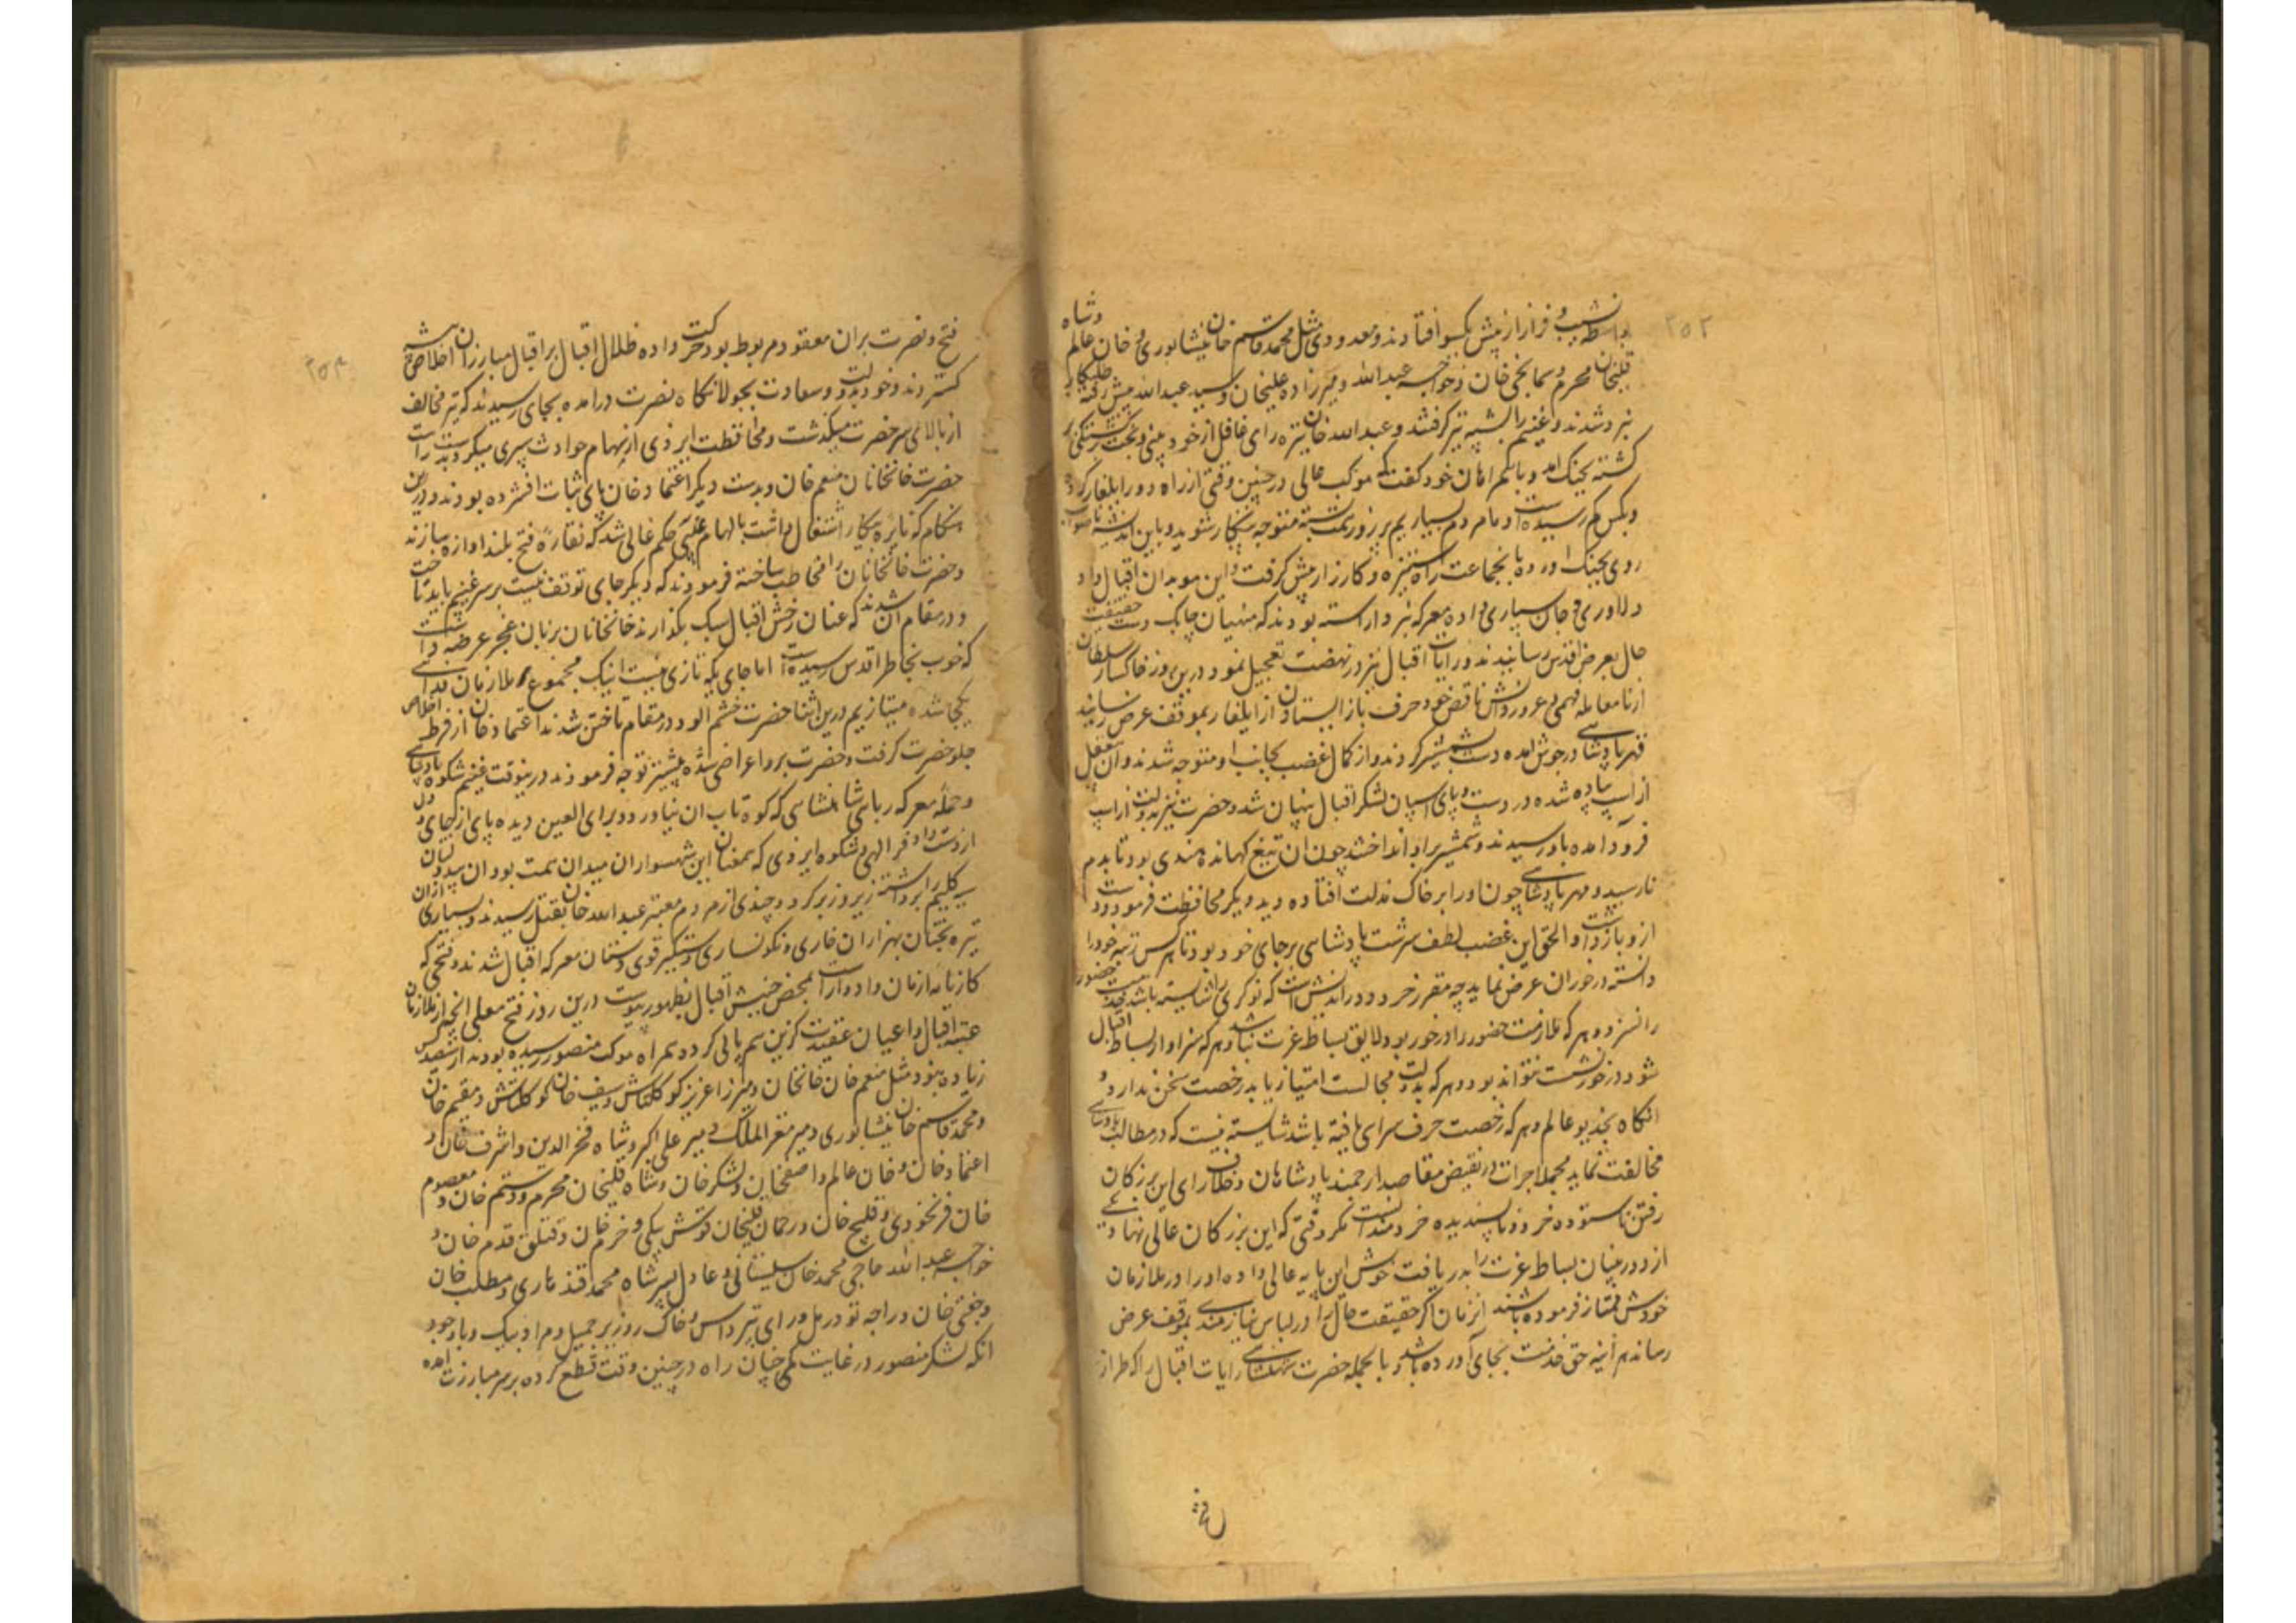 ۲۵۲
بواسطه نشیب و فراز از پیش یکسو افتادند و معدودی مثل محمد قاسم خان نیشاپوری و خان عالم و شاه
قلیخان محرم و سمانجی خان و خواجه عبدالله و میرزاده علیخان و سید عبدالله پیش رفته طلبکار
نبرد شدند و غنیم را شیه تیز کرفتند و عبدالله خان تیره رای غافل از خود بینی و بخت برکشتکی بر
کشته بجنک آمد و باسلم امان خود کفت که موکب عالی در چنین وقتی از راه دور ایلغار کرده
وبکس کم رسیده است و ما مردم بسیاریم بر زور همت بسته متوجه پیکار شوید و باین اندیشه ناصواب
روی بجنک آورده با نجماعت راه ستیزه و کارزار پیش کرفت و این موبدان اقبال داد
دلاوری و جان سپاری داده معرکه نبرد آراسته بودند که منهیان چابک دست حقیقت
حال بعرض اقدس رسانیدند و رایات اقبال نیز در نهضت تعجیل نمود درین روز خاکسار سلطان
از نامعامله فهمی و غرور دانش ناقص خود حرف باز ایستادن از ایلغار بموقف عرض رسانید
قهر پادشاهی در جوش آمده دست بشمشیر کردند و از کمال غضب بجانب او متوجه شدند و آن بیعقل
از اسپ پیاده شده در دست و پای اسپان لشکر اقبال پنهان شد و حضرت نیز بدولت از اسپ
فرود آمده باو رسیدند و شمشیر براو انداختند چون آن تیغ کهانده هندی بود تا بدم
نارسید و مهر پادشاهی چون او را بر خاک مذلت افتاده دید دیکر محافظت فرمود و دست
ازو باز داشت و الحق این غضب لطف سرشت پادشاهی بر جای خود بود تا هر کس رتبه خود را
دانسته در خور آن عرض نماید چه مقرر خرد دور اندیش است که نوکری را شایسته باشد خدمت حضور
را نسزد و هر که ملازمت حضور را در خور بود لایق بساط عزت نباشد و هر که سزاوار بساط اقبال
شود در خور نشست نتواند بود و هر که بدولت مجالست امتیاز یابد رخصت سخن ندارد و
انکاه بخدیو عالم و هر که رخصت حرف سرای یافته باشد شایسته نیست که در مطالب پادشاهی
مخالفت نماید مجملا جرات در نقیض مقاصد ارجمند پادشاهان و خلاف رای این بزرکان
رفتن ناستوده خرد و ناپسندیده خردمند است مکر وقتی که این بزرکان عالی نهاد یکی
از دور بینان بساط عزت را به دریافت خوش این پایه عالی داده او را در ملازمان
خودش ممتاز فرموده باشند انزمان اکر حقیقت حال را در لباس نیازمندی بموقف عرض
رساند هر آینه حق خدمت بجای آورده باشد و بالجمله حضرت شاهنشاهی رایات اقبال را که طراز
فتح
۲۵۳
فتح و نصرت بران معقود و مربوط بود حرکت داده ظلال اقبال بر اقبال مبارزان اخلاص پیشه
کستردند و خود بدولت و سعادت بجولانکاه نصرت درامده بجای رسیدند که تیر مخالف
از بالای سر حضرت میکذشت و محافظت ایزدی از سهام حوادث سپری میکرد بدست راست
حضرت خانخانان منعم خان و بدست دیکر اعتماد خان پای ثبات افشرده بودند و درین
هنکام که نایره پیکار اشتعال داشت بالهام غیبی حکم عالی شد که نقاره فتح بلند آوازه سازند
و حضرت خانخانان را مخاطب ساخته فرمودند که دیکر جای توقف نیست بر سر غنیم باید تاخت
و در مقام آن شدند که عنان رخش اقبال سبک بکذارند خانخانان بزبان عجز عرضه داشت
که خوب بخاطر اقدس رسیده است اما جای یکه تازی نیست اینک مجموع ملازمان فدائی
یکجا شده میتازیم درین اثنا حضرت خشم آلود در مقام تاختن شدند اعتماد خان از فرط اخلاص
جلو حضرت کرفت و حضرت برو اعراضی شده پیشتر توجه فرمودند درینوقت غنیم شکوه پادشاهی
و حمله معرکه ربای شاهنشاهی که کوه تاب آن نیاورد و برای العین دیده پای از جای و دل
از دست داد فر الهی و شکوه ایزدی که همعنان این شهسواران میدان همت بود آن بیدولتان
سیه کلیم را برداشته زیر و زبر کرد و چندی از مردم معتبر عبدالله خان بقتل رسیدند و بسیاری ازان
تیره بختان بهزاران خاری و نکونساری دستکیر قوی دستان معرکه اقبال شدند و فتحی که
کارنامه ازمان و ادوار است بمحض جنبش اقبال بظهور پیوست درین روز فتح معلی انچه از ملازمان
عتبه اقبال و اعیان عقیدت کزین سم پالی کرده همراه موکب منصور رسیده بودند از سیصد کس
زیاده نبود مثل منعم خان خانخانان و میرزا عزیز کوکلتاش و سیف خان کوکلتاش و مقیم خان
و محمد قاسم خان نیشاپوری و میر معز الملک و میر علی اکبر و شاه فخر الدین و اشرف خان و
اعتماد خان و خان عالم و اصفخان و لشکر خان و شاه قلیخان محرم و دستم خان و معصوم
خان فرنخودی و قلیج خان و رحمان قلیخان قوش بیکی و خرم خان و قتلق قدم خان و
خواجه عبدالله حاجی محمد خان سیستانی و عادل پسر شاه محمد قندهاری و مطلب خان
و جغتی خان و راجه تودرمل و رای پتر داس و خاک روز بر جمیل و مراد بیک و باوجود
انکه لشکر منصور در غایت کمی چنان راه در چنین وقت قطع کرده بر سر مبارزت آمده